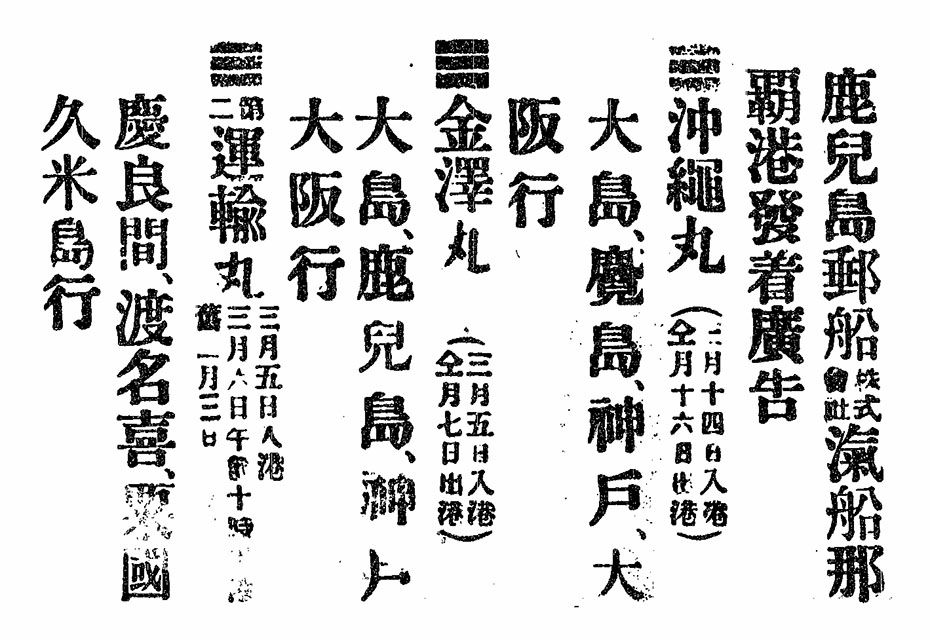 鹿兒島郵船株式會社滊船那
覇港發着廣告
沖繩丸
(二月十四日入港
仝月十六日出港)
大島、鹿兒島、神戶、大
阪行
金澤丸
(三月五日入港
仝月七日出港)
大島、鹿兒島、神戶
大阪行
第二運輸丸
三月五日入港
三月六日午前十時
舊一月三日
慶良間、渡名喜、粟國
久米島行